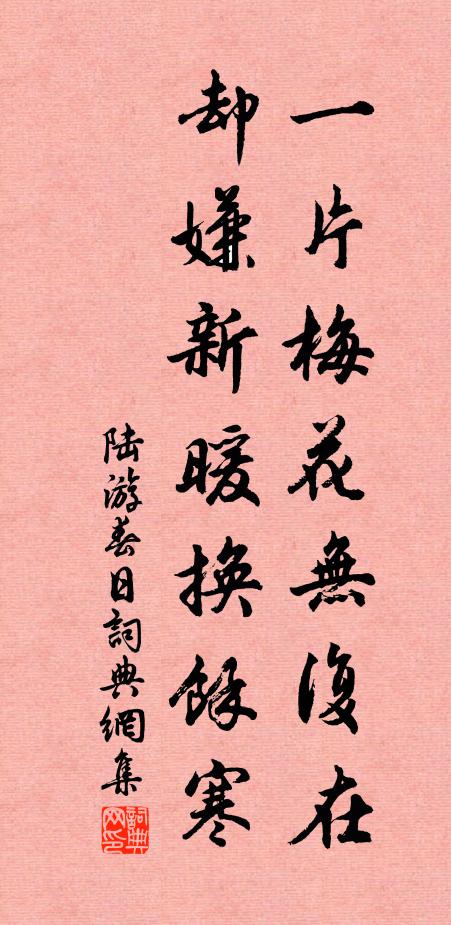 一片梅花無復在
却嫌新暖換餘寒
陆游春日詞典網集
詞典网印